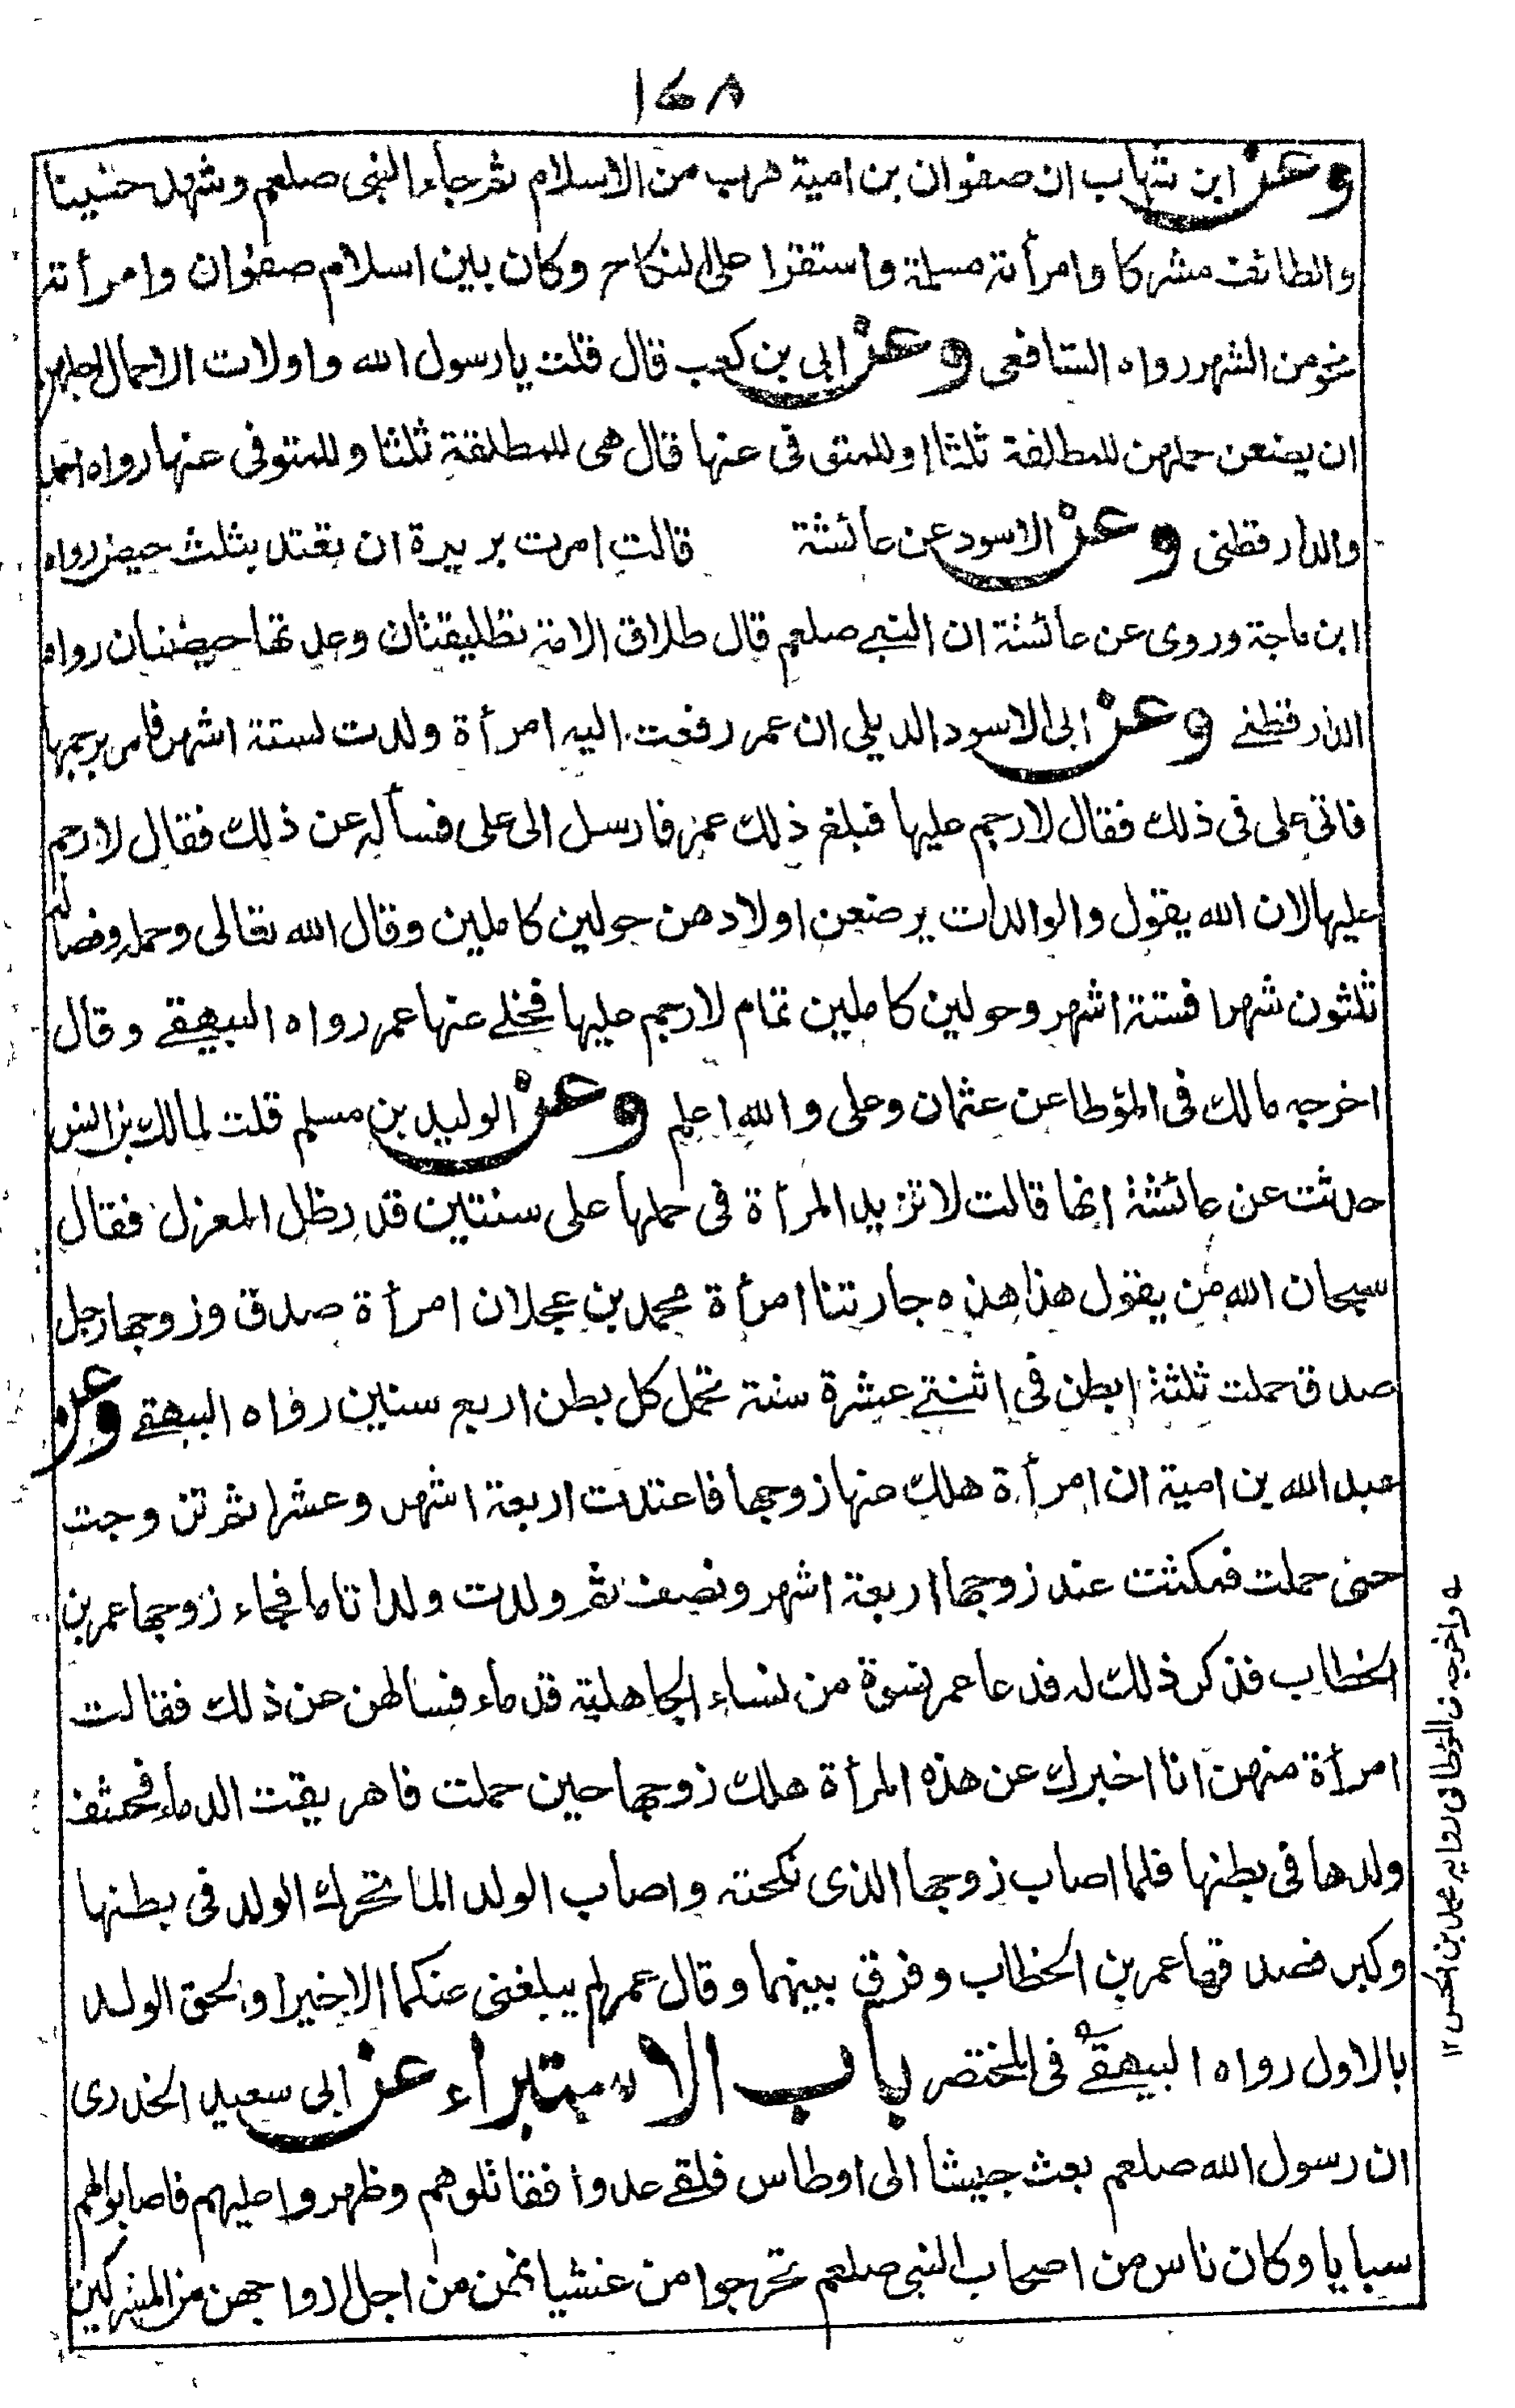 ١٦٨
وعن ابن شهاب ان صفوان بن امية هرب من الاسلام ثم جاء النبى صلعم وشهد حنينا
والطائف مشركا وامرأته مسلمة واستقرا على النكاح وكان بين اسلام صفوان وامرأته
نحو من الشهر رواه الشافعى وعن ابى بن كعب قال قلت يا رسول الله واولات الاحمال اجلهن
ان يضعن حملهن للمطلقة ثلثا او للمتوفى عنها قال هى للمطلقة ثلثا وللمتوفى عنها رواه احمد
والدارقطنى وعن الاسود عن عائشة قالت امرت بريرة ان تعتد بثلث حيض رواه
ابن ماجة وروى عن عائشة ان النبے صلعم قال طلاق الامة تطليقتان وعدتها حيضتان رواه
الدارقطنے وعن ابى الاسود الديلى ان عمر رفعت اليه امرأة ولدت لستة اشهر فامر برجمها
فاتى على فى ذلك فقال لا رجم عليها فبلغ ذلك عمر فارسل الى على فسأله عن ذلك فقال لا رجم
عليها لان الله يقول والوالدات يرضعن اولادهن حولين كاملين وقال الله تعالى وحمله وفصاله
ثلثون شهرا فستة اشهر وحولين كاملين تمام لا رجم عليها فخلے عنها عمر رواه البيهقے وقال
اخرجه مالك فى المؤطا عن عثمان وعلى والله اعلم وعن الوليد بن مسلم قلت لمالك بن انس
حدثت عن عائشة انها قالت لا تزيد المرأة فى حملها على سنتين قدر ظل المغزل فقال
سبحان الله من يقول هذا هذه جارتنا امرأة محمد بن عجلان امرأة صدق وزوجها رجل
صدق حملت ثلثة ابطن فى اثنتے عشرة سنة تحمل كل بطن اربع سنين رواه البيهقے وعن
عبد الله بن امية ان امرأة هلك عنها زوجها فاعتدت اربعة اشهر وعشرا ثم تزوجت
حتى حملت فمكثت عند زوجها اربعة اشهر ونصف ثم ولدت ولدا تاما فجاء زوجها عمر بن
الخطاب فذكر ذلك له فدعا عمر نسوة من نساء الجاهلية قدماء فسالهن عن ذلك فقالت
امرأة منهن انا اخبرك عن هذه المرأة هلك زوجها حين حملت فاهريقت الدماء فحشف
ولدها فى بطنها فلما اصاب زوجها الذى نكحته واصاب الولد الما تحرك الولد فى بطنها
وكبر فصدقها عمر بن الخطاب وفرق بينهما وقال عمر لم يبلغنى عنكما الا خيرا والحق الولد
بالاول رواه البيهقے فى المختصر باب الاستبراء عن ابى سعيد الخدرى
ان رسول الله صلعم بعث جيشا الى اوطاس فلقے عدوا فقاتلوهم وظهروا عليهم فاصابوا لهم
سبايا وكان ناس من اصحاب النبى صلعم تحرجوا من غشيانهن من اجل ازواجهن من المشركين
ے واخرجه فى المؤطا فى رواية محمد بن الحسن ١٢